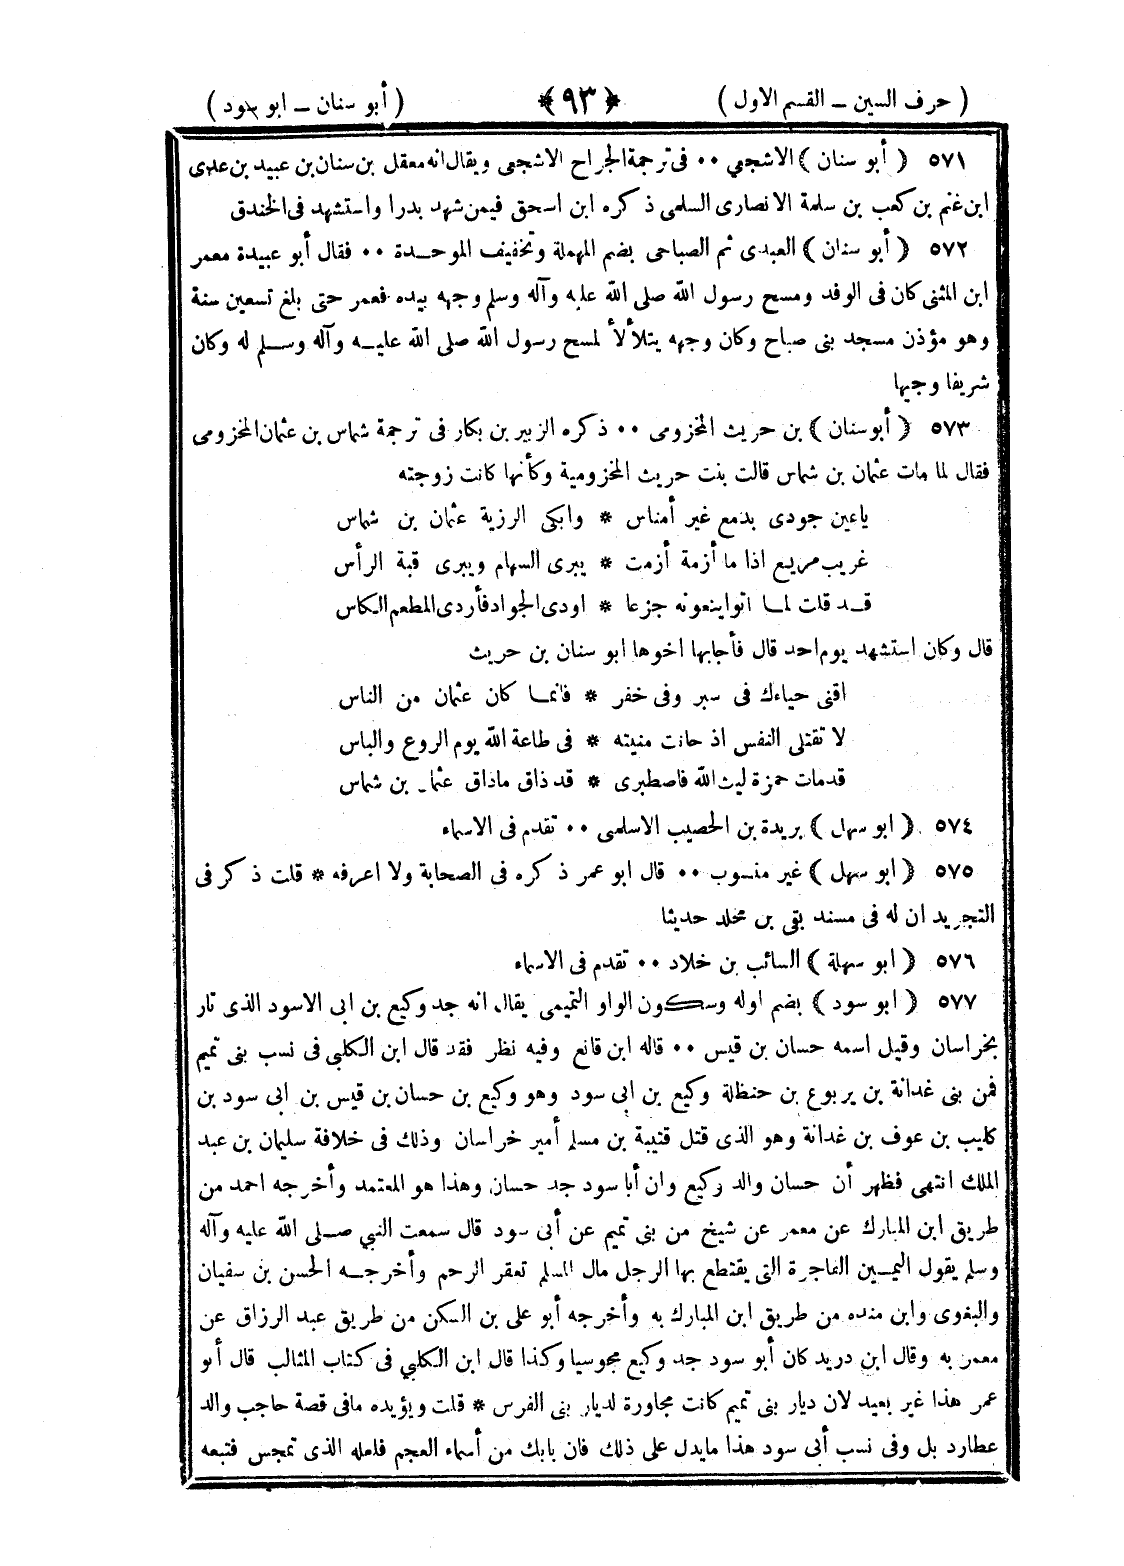 ( حرف السين ـ القسم الاول ) ﴿ ٩٣ ﴾ ( أبو سنان ـ ابو سود )
٥٧١ ( أبو سنان ) الاشجعي ۰۰ فى ترجمة الجراح الاشجعى ويقال انه معقل بن سنان بن عبيد بن عدى
ابن غنم بن كعب بن سلمة الانصارى السلمى ذكره ابن اسحق فيمن شهد بدرا واستشهد فى الخندق
٥٧٢ ( أبو سنان ) العبدى ثم الصباحى بضم المهملة وتخفيف الموحدة ۰۰ فقال أبو عبيدة معمر
ابن المثنى كان فى الوفد ومسح رسول الله صلى الله عليه وآله وسلم وجهه بيده فعمر حتى بلغ تسعين سنة
وهو مؤذن مسجد بنى صباح وكان وجهه يتلألأ لمسح رسول الله صلى الله عليه وآله وسلم له وكان
شريفا وجيها
٥٧٣ ( أبوسنان ) بن حريث المخزومى ۰۰ ذكره الزبير بن بكار فى ترجمة شماس بن عثمان المخزومى
فقال لما مات عثمان بن شماس قالت بنت حريث المخزومية وكأنها كانت زوجته
ياعين جودى بدمع غير أمناس * وابكى الرزية عثمان بن شماس
غريب مريع اذا ما أزمة أزمت * يبرى السهام ويبرى قبة الرأس
قد قلت لما اتوا ينعونه جزعا * اودى الجواد فأردى المطعم الكاس
قال وكان استشهد يوم احد قال فأجابها اخوها ابو سنان بن حريث
اقنى حياءك فى سبر وفى خفر * فانما كان عثمان من الناس
لا تقتلى النفس اذ حانت منيته * فى طاعة الله يوم الروع والباس
قدمات حمزة ليث الله فاصطبرى * قد ذاق ماذاق عثمان بن شماس
٥٧٤ ( ابو سهل ) بريدة بن الحصيب الاسلمى ۰۰ تقدم فى الاسماء
٥٧٥ ( ابو سهل ) غير منسوب ۰۰ قال ابو عمر ذكره فى الصحابة ولا اعرفه * قلت ذكر فى
التجريد ان له فى مسند بقى بن مخلد حديثا
٥٧٦ ( ابو سهلة ) السائب بن خلاد ۰۰ تقدم فى الاسماء
٥٧٧ ( ابو سود ) بضم اوله وسكون الواو التميمى يقال انه جد وكيع بن ابى الاسود الذى ثار
بخراسان وقيل اسمه حسان بن قيس ۰۰ قاله ابن قانع وفيه نظر فقد قال ابن الكلبي فى نسب بنى تميم
فمن بنى غدانة بن يربوع بن حنظلة وكيع بن ابى سود وهو وكيع بن حسان بن قيس بن ابى سود بن
كليب بن عوف بن غدانة وهو الذى قتل قتيبة بن مسلم أمير خراسان وذلك فى خلافة سليمان بن عبد
الملك انتهى فظهر أن حسان والد وكيع وان أبا سود جد حسان وهذا هو المعتمد وأخرجه احمد من
طريق ابن المبارك عن معمر عن شيخ من بنى تميم عن أبى سود قال سمعت النبي صلى الله عليه وآله
وسلم يقول اليمين الفاجرة التى يقتطع بها الرجل مال المسلم تعقر الرحم وأخرجه الحسن بن سفيان
والبغوى وابن منده من طريق ابن المبارك به وأخرجه أبو على بن السكن من طريق عبد الرزاق عن
معمر به وقال ابن دريد كان أبو سود جد وكيع مجوسيا وكذا قال ابن الكلبي فى كتاب المثالب قال أبو
عمر هذا غير بعيد لان ديار بنى تميم كانت مجاورة لديار بنى الفرس * قلت ويؤيده مافى قصة حاجب والد
عطارد بل وفى نسب أبى سود هذا مايدل على ذلك فان بابك من أسماء العجم فلعله الذى تمجس فتبعه